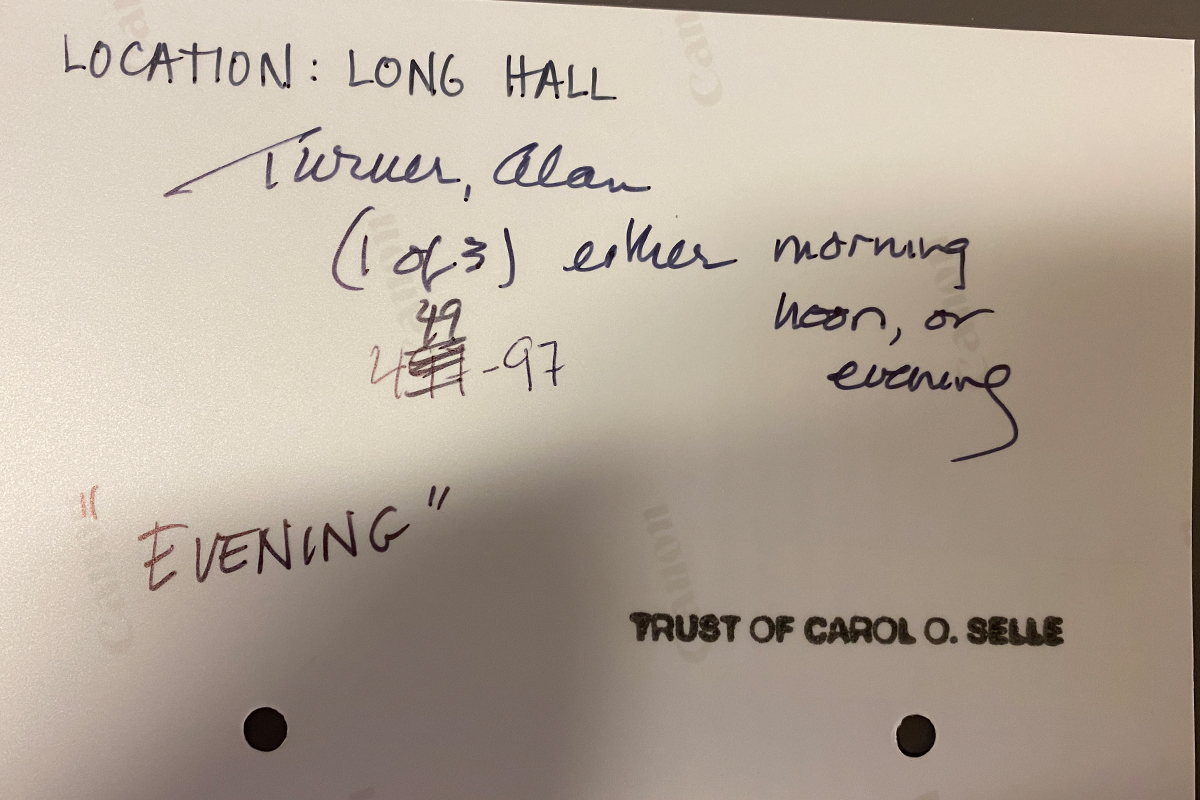 LOCATION: LONG HALL
Turner, Alan
(1 of 3) either morning
noon, or
evening
49
4 -97
"EVENING"
TRUST OF CAROL O. SELLE
Canon
Canon
Canon
Canon
Canon